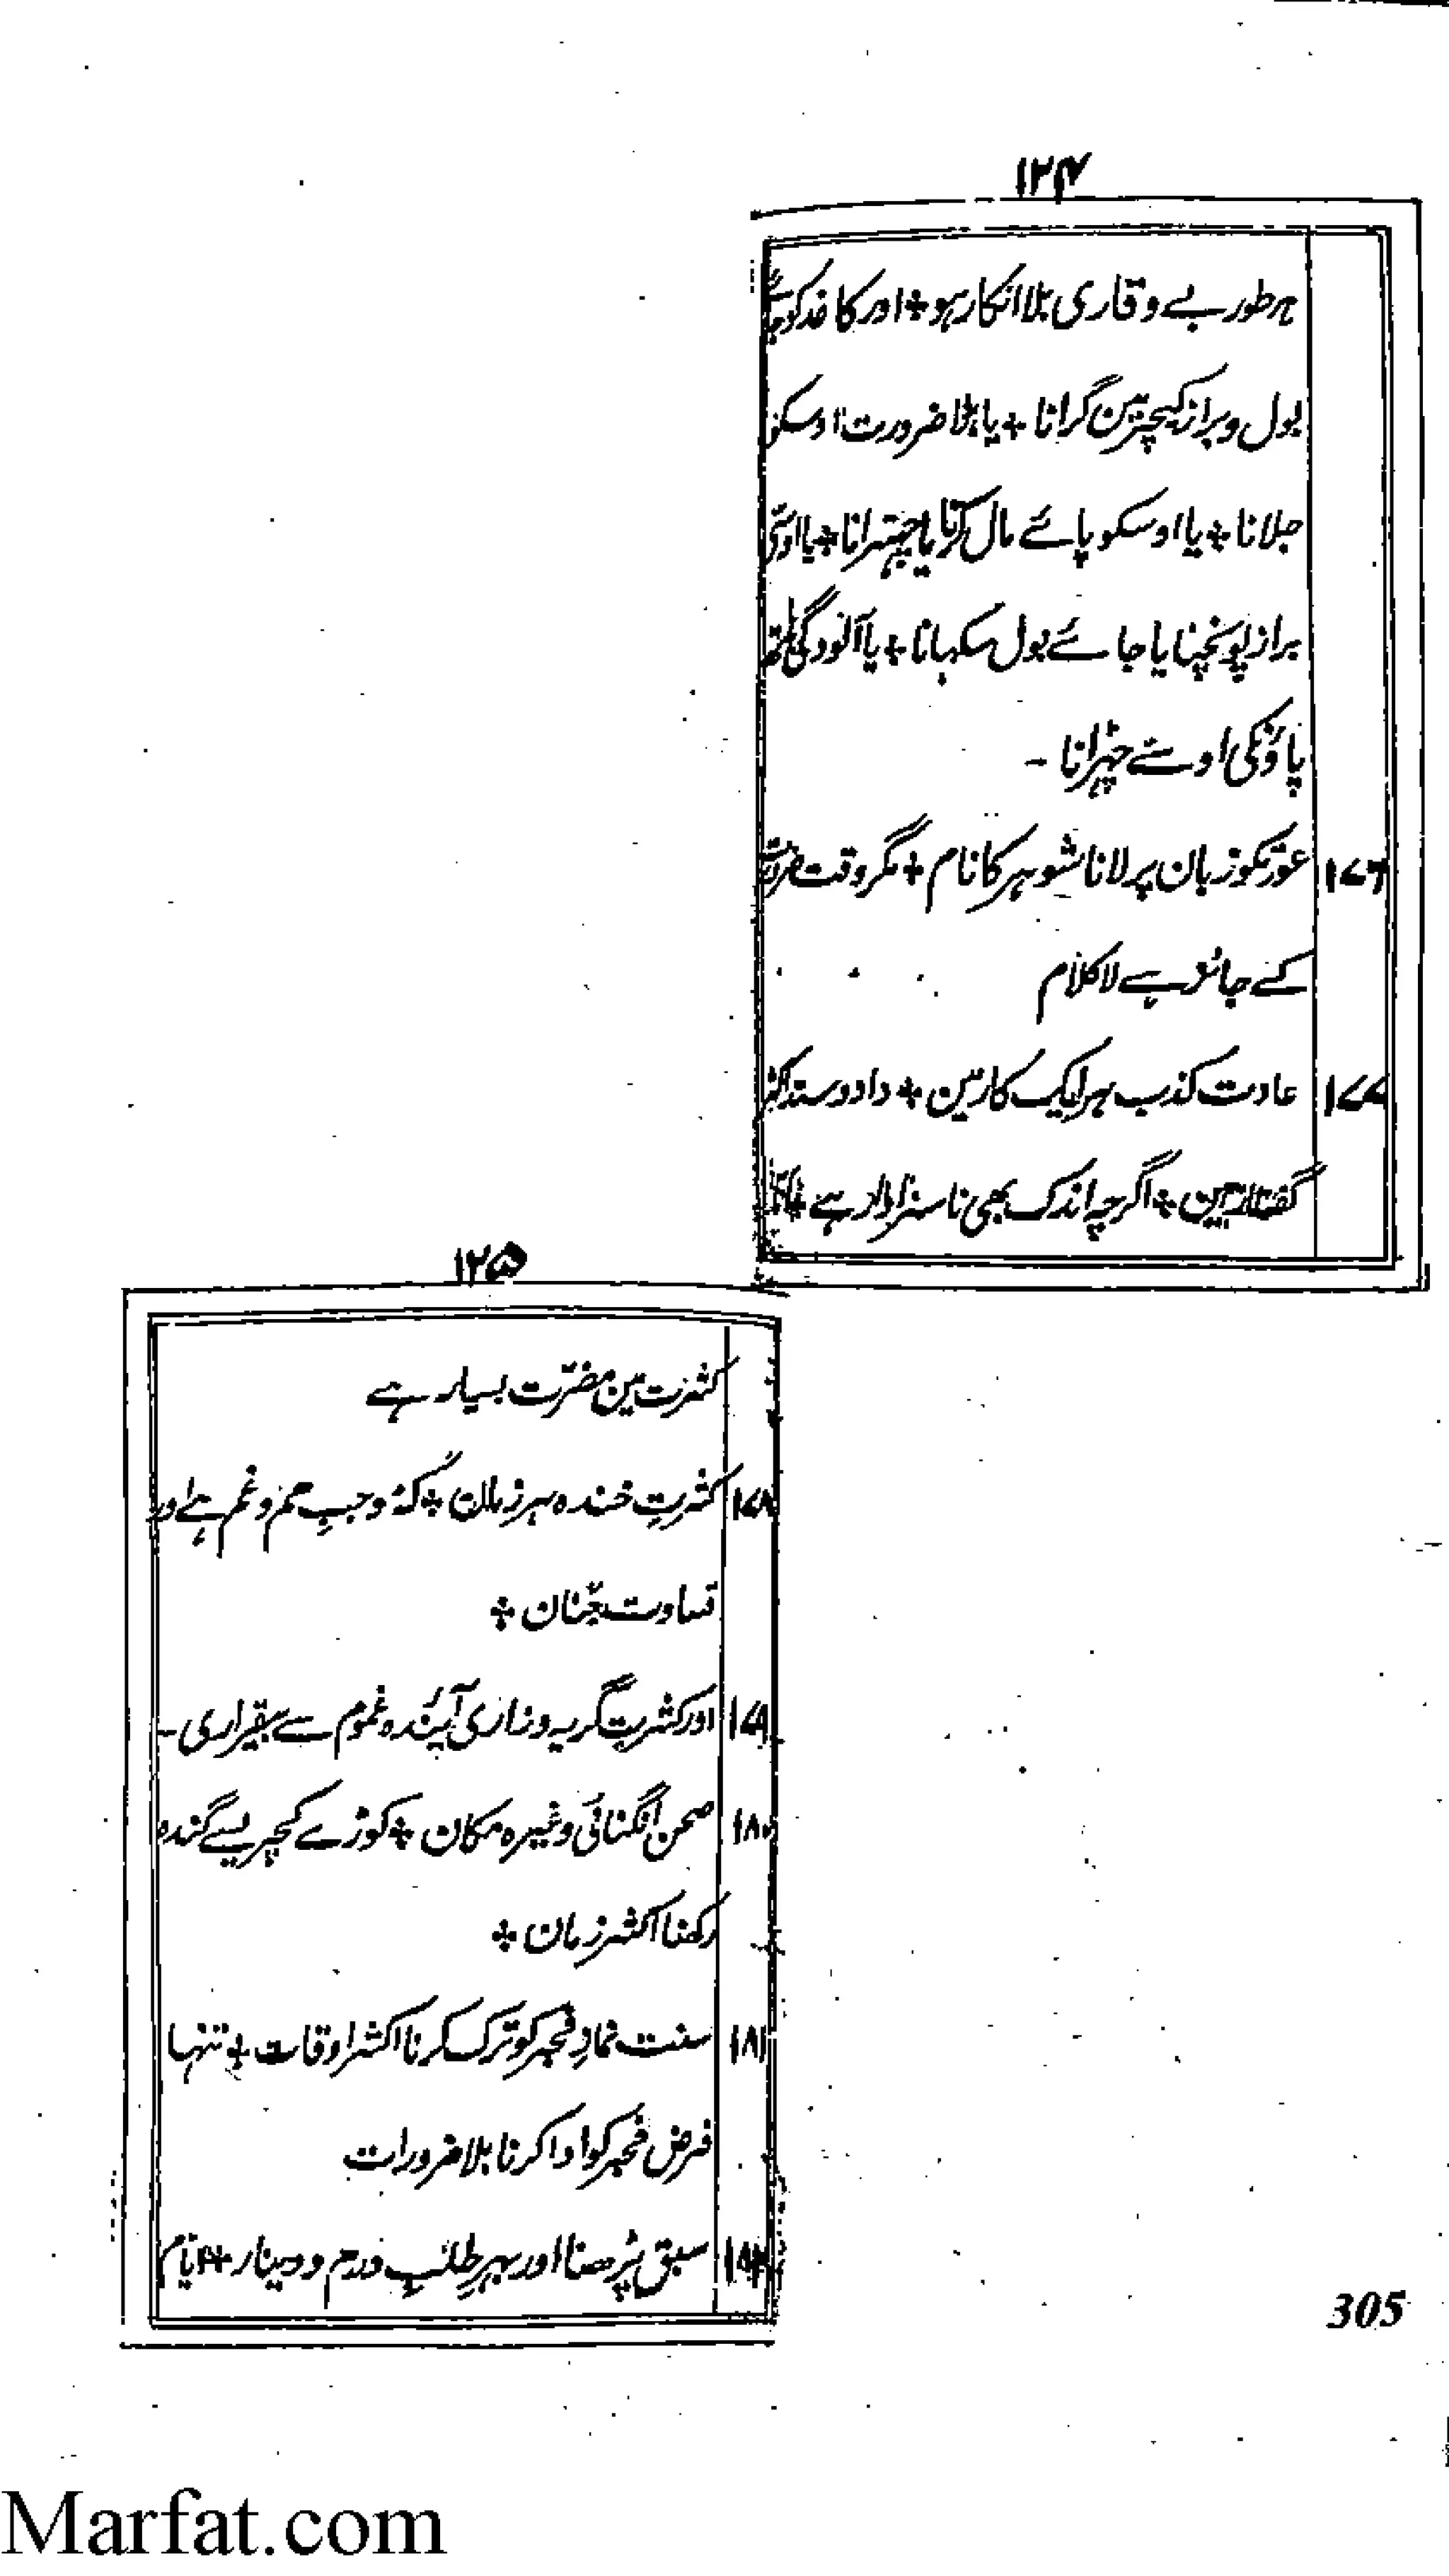 ۱۲۴
ہر طور بے وقاری بلا انکار ہو + اور کاغذ کو جائے
بول و براز کیچڑ مین گرانا + یا بلا ضرورت اوسکو
جلانا + یا اوسکو پائے مال کرنا یا چیتھرانا + یا اوسی
براز پونچہنا یا جائے بول سکہانا + یا آلودگی
پاؤنکی اوسے چھڑانا -
۱۷۶ عورتکو زبان پر لانا شوہر کا نام + مگر وقت ضرورت
کے جائز ہے لا کلام
۱۷۷ عادت کذب ہر ایک کار مین + داد و ستد اکثر
گفتار مین + اگرچہ اندک بھی ناسزاوار ہے +
۱۲۵
کثرت مین مضرّت بسیار ہے
۱۷۸ کثرتِ خندہ ہر زمان + کہ موجبِ ہم و غم ہے اور
قساوت جنان +
۱۷۹ اور کثرتِ گریہ و زاری آیندہ غموم سے بیقراری -
۱۸۰ صحن انگنائی وغیرہ مکان + کوڑے کیچڑ سے گندہ
رکھنا اکثر زمان +
۱۸۱ سنت نمازِ فجر کو ترک کرنا اکثر اوقات + تنہا
فرض فجر کو ادا کرنا بلا ضرورات
۱۸۲ سبق پڑھنا اور بہرِ طلبِ درم و دینار +
305
Marfat.com